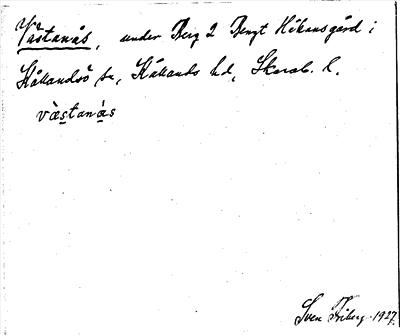 Västanås, under Berg 2 Bengt Håkansgård i
Kållandsö sn, Kållands hd, Skarab. l.
vàstanás
Sven Friberg. 1927.